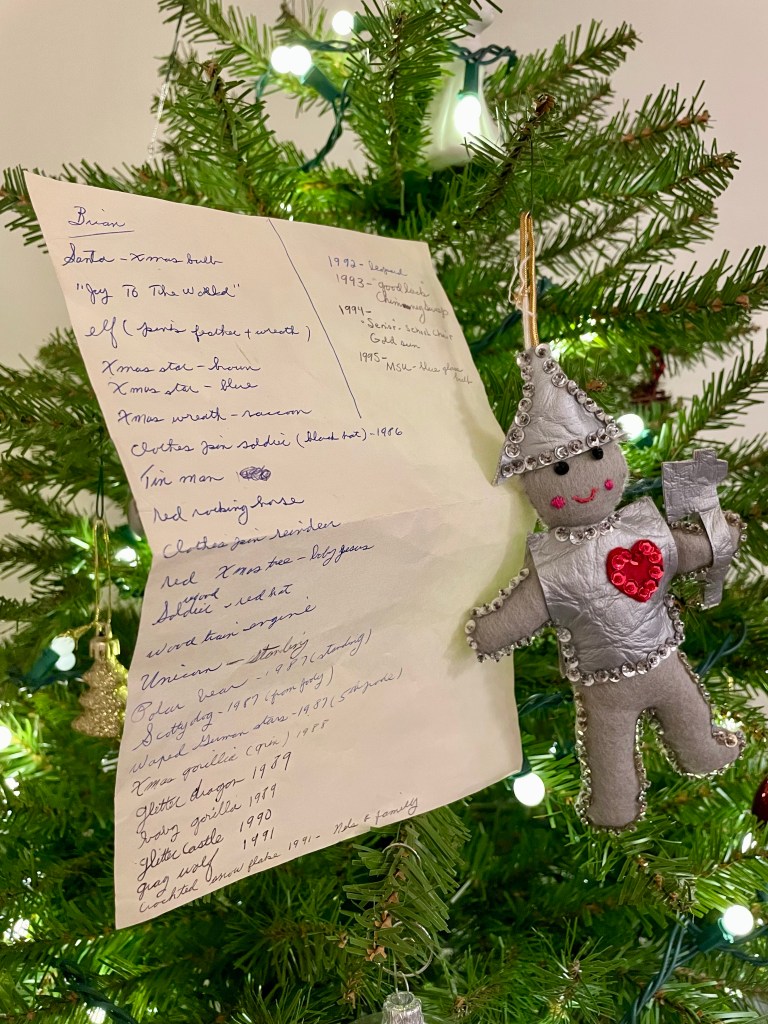 Brian
Santa - Xmas bulb
"Joy To The World"
elf (pinis feather + wreath)
Xmas star - brown
Xmas star - blue
Xmas wreath - raccoon
Clothes pin soldier (black hat) - 1986
Tin man
red rocking horse
Clothes pin reindeer
red Xmas tree - baby Jesus
wood
Soldier - red hat
wood train engine
Unicorn - standing
Polar bear - 1987 (standing)
Scotty dog - 1987 (from Jody)
Waped German stars - 1987 (5
Xmas gorillie (grin) 1988
glitter dragon 1989
baby gorilla 1989
glitter castle 1990
gray wolf 1991
Crochted snow flake 1991 - & family
1992 - leopard
1993 - "good luck"
Chimney
1994 -
"Sensi -
Gold sun
1995 -
MSU - blue glass